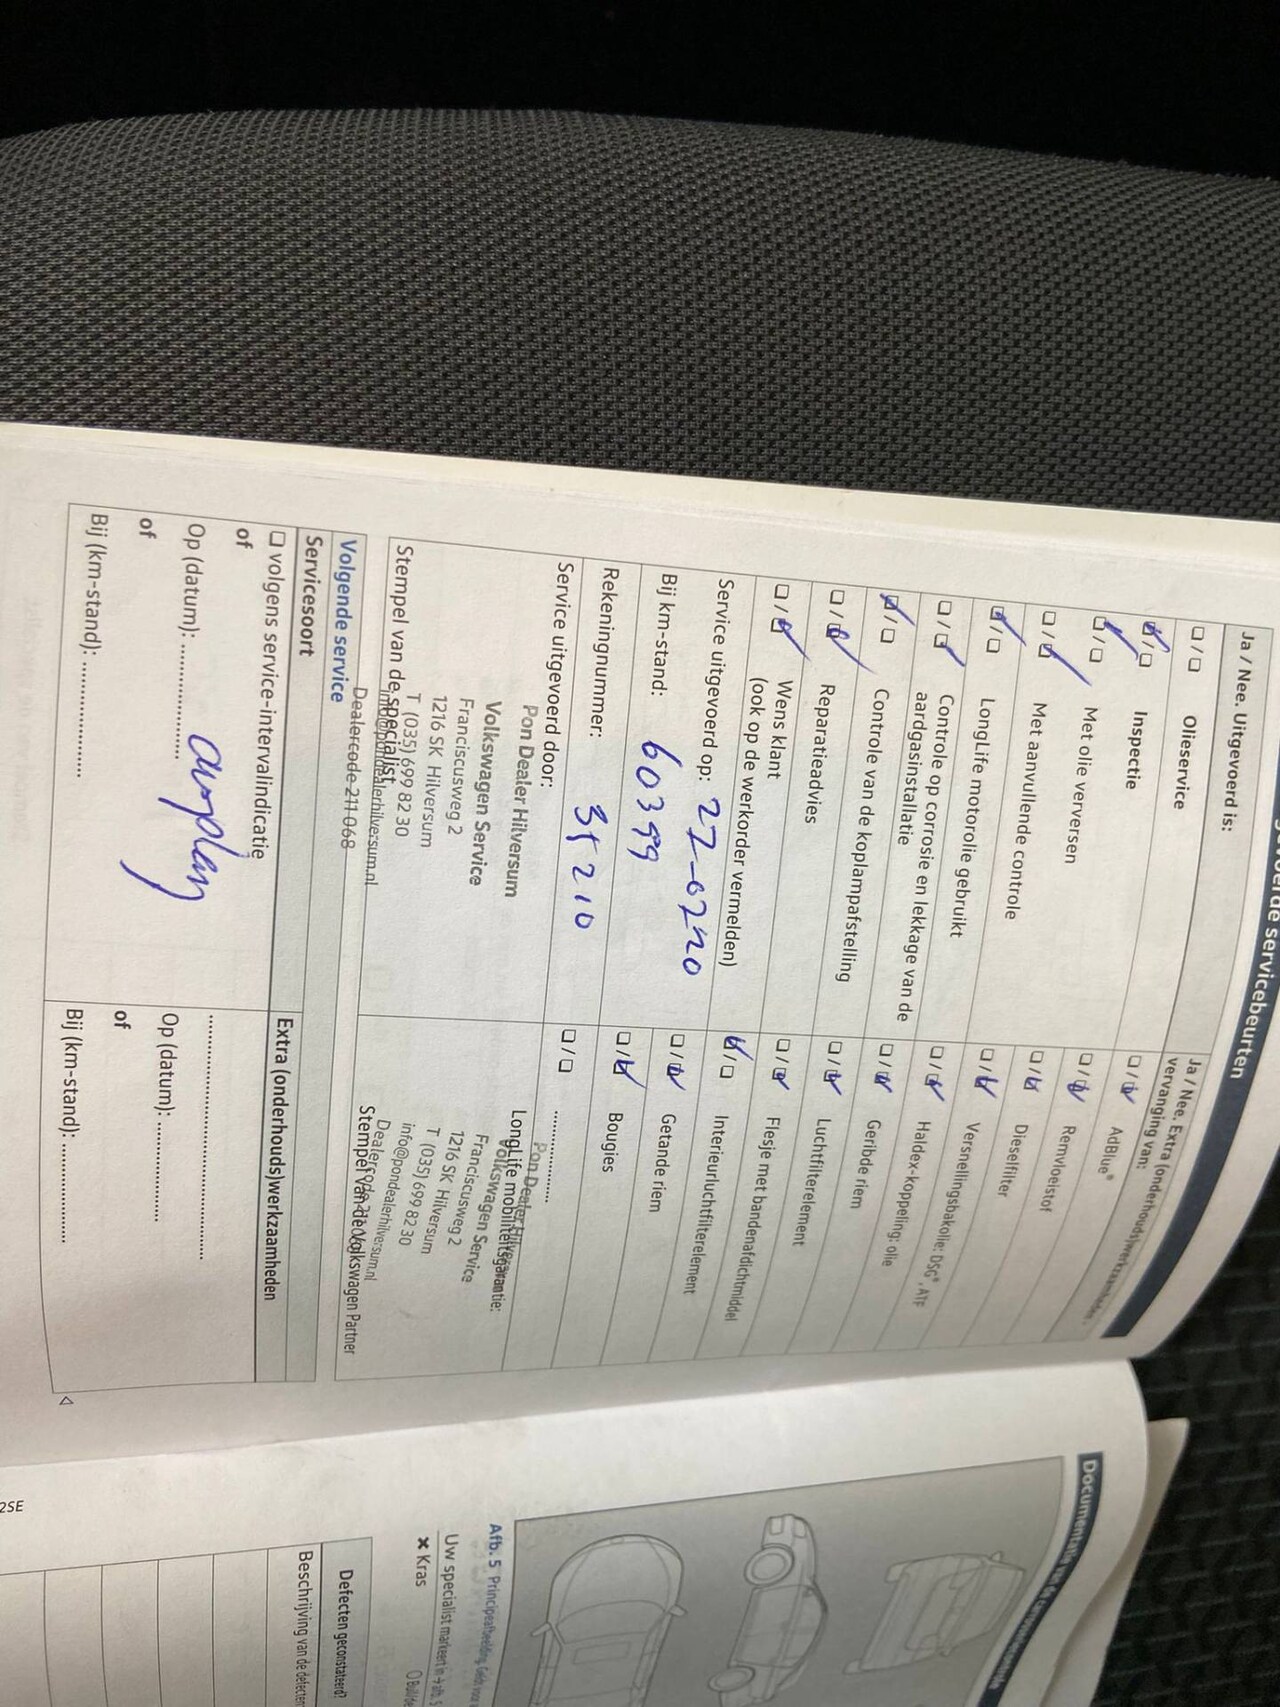 servicebeurten
Ja / Nee. Uitgevoerd is:
☐ / ☐ Olieservice
☑ / ☐ Inspectie
☑ / ☐ Met olie verversen
☐ / ☑ Met aanvullende controle
☑ / ☐ LongLife motorolie gebruikt
☐ / ☑ Controle op corrosie en lekkage van de
aardgasinstallatie
☑ / ☐ Controle van de koplampafstelling
☐ / ☑ Reparatieadvies
☐ / ☑ Wens klant
(ook op de werkorder vermelden)
Service uitgevoerd op: 27-0220
Bij km-stand: 60399
Rekeningnummer:
Service uitgevoerd door:
Pon Dealer Hilversum
Volkswagen Service
Franciscusweg 2
1216 SK Hilversum
T (035) 699 82 30
info@pondealerhilversum.nl
Dealercode 211068
Stempel van de specialist
Ja / Nee. Extra (onderhouds)werkzaamheden,
vervanging van:
☐ / ☑ AdBlue®
☐ / ☑ Remvloeistof
☐ / ☑ Dieselfilter
☐ / ☑ Versnellingsbakolie: DSG®, ATF
☐ / ☑ Haldex-koppeling: olie
☐ / ☑ Geribde riem
☐ / ☑ Luchtfilterelement
☐ / ☑ Flesje met bandenafdichtmiddel
☑ / ☐ Interieurluchtfilterelement
☐ / ☑ Getande riem
☐ / ☑ Bougies
☐ / ☐ ..............
LongLife mobiliteitsgarantie:
Pon Dealer Hilversum
Volkswagen Service
Franciscusweg 2
1216 SK Hilversum
T (035) 699 82 30
info@pondealerhilversum.nl
Stempel van de Volkswagen Partner
Volgende service
Servicesoort
☐ volgens service-intervalindicatie
of
Op (datum): ....................
of
Bij (km-stand): ....................
Extra (onderhouds)werkzaamheden
........................................
Op (datum): ....................
of
Bij (km-stand): ....................
Documentatie van de
Afb. 5 Principeafbeelding
Uw specialist markeert in → afb. 5
✖ Kras
Defecten geconstateerd?
Beschrijving van de defecten
2SE